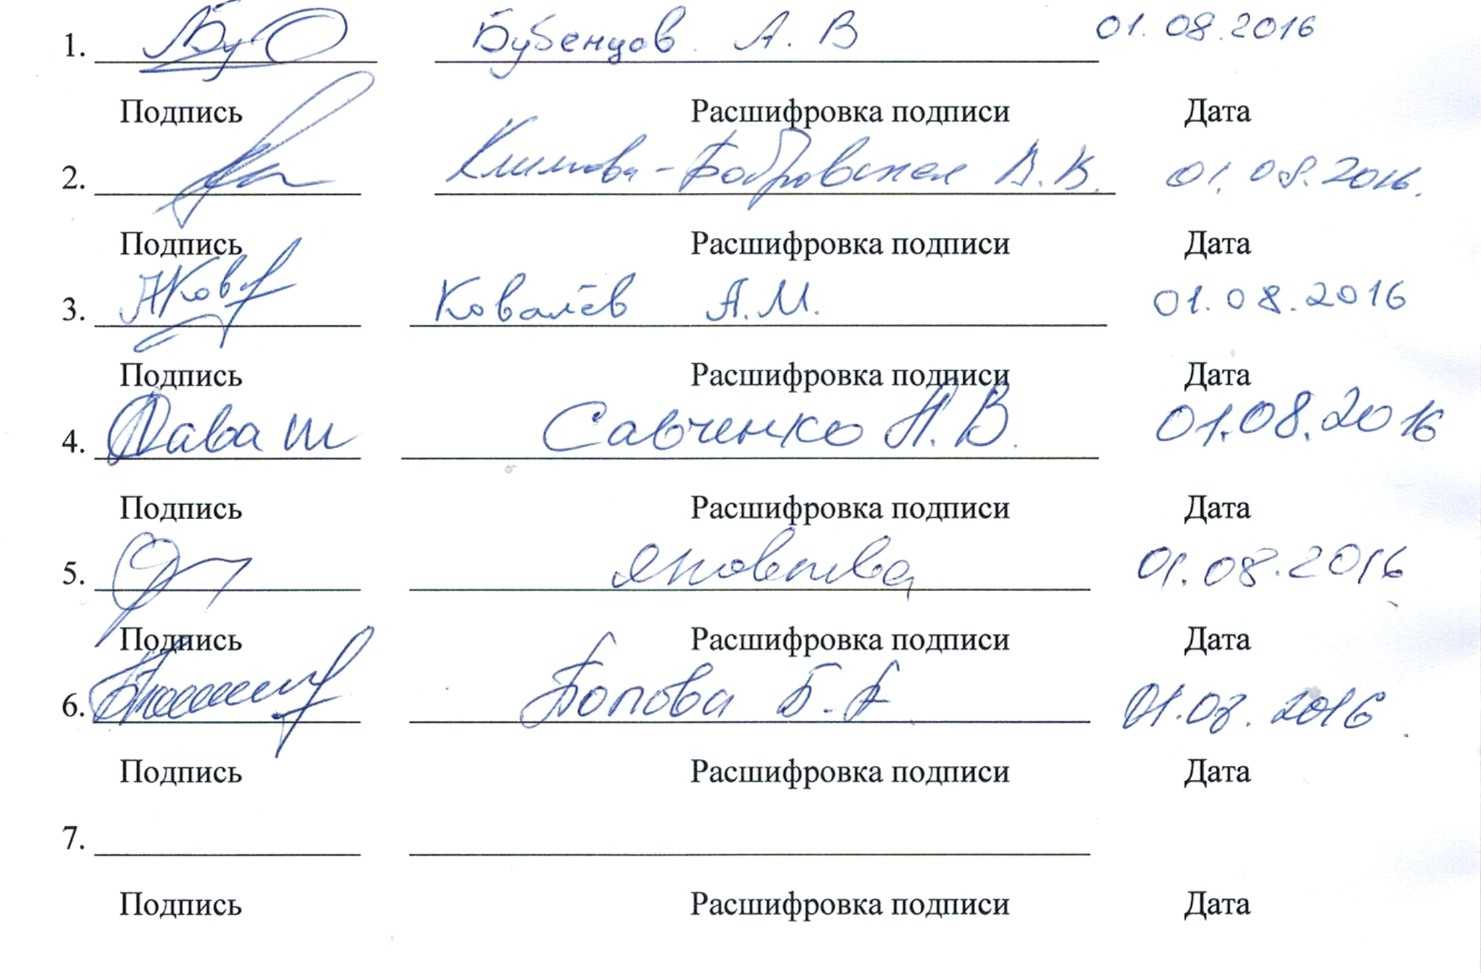 1. Бубенцов А. В 01.08.2016
Подпись Расшифровка подписи Дата
2. Климова-Бобровская В.В. 01.08.2016.
Подпись Расшифровка подписи Дата
3. АКов Ковалёв А.М. 01.08.2016
Подпись Расшифровка подписи Дата
4. Савченко Н.В. 01.08.2016
Подпись Расшифровка подписи Дата
5. 01.08.2016
Подпись Расшифровка подписи Дата
6. Попова Б.А 01.08.2016.
Подпись Расшифровка подписи Дата
7.
Подпись Расшифровка подписи Дата